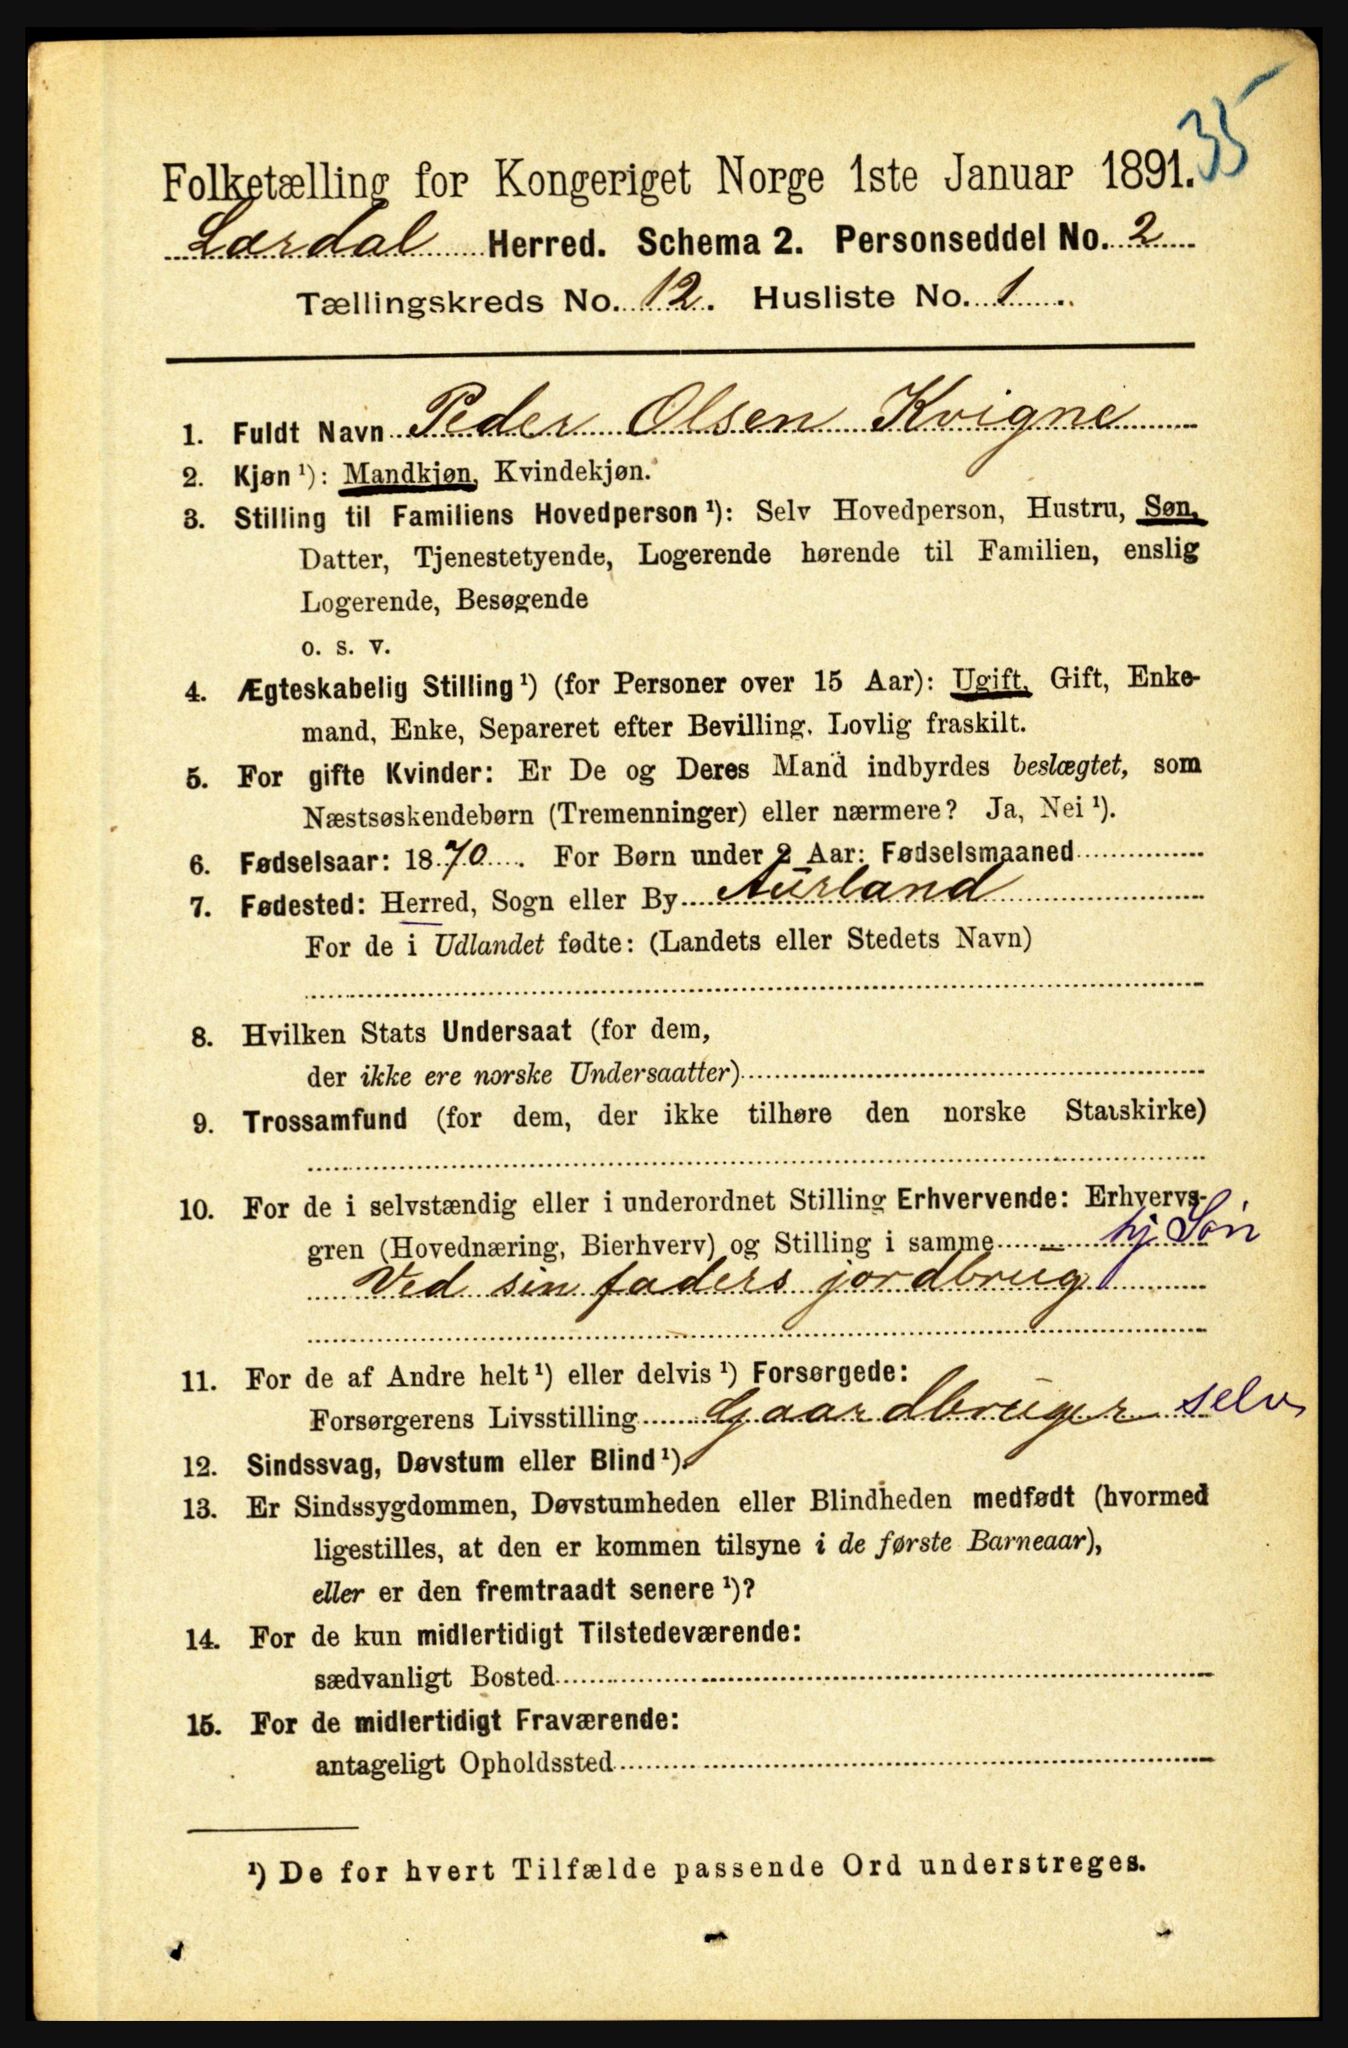 35
Folketælling for Kongeriget Norge 1ste Januar 1891.
Lærdal Herred. Schema 2. Personseddel No. 2
Tællingskreds No. 12. Husliste No. 1.
1. Fuldt Navn Peder Olsen Kvigne
2. Kjøn ¹): Mandkjøn, Kvindekjøn.
3. Stilling til Familiens Hovedperson ¹): Selv Hovedperson, Hustru, Søn,
Datter, Tjenestetyende, Logerende hørende til Familien, enslig
Logerende, Besøgende
o. s. v.
4. Ægteskabelig Stilling ¹) (for Personer over 15 Aar): Ugift, Gift, Enke-
mand, Enke, Separeret efter Bevilling. Lovlig fraskilt.
5. For gifte Kvinder: Er De og Deres Mand indbyrdes beslægtet, som
Næstsøskendebørn (Tremenninger) eller nærmere? Ja, Nei ¹).
6. Fødselsaar: 1870. For Børn under 2 Aar: Fødselsmaaned
7. Fødested: Herred, Sogn eller By Aurland
For de i Udlandet fødte: (Landets eller Stedets Navn)
8. Hvilken Stats Undersaat (for dem,
der ikke ere norske Undersaatter)
9. Trossamfund (for dem, der ikke tilhøre den norske Statskirke)
10. For de i selvstændig eller i underordnet Stilling Erhvervende: Erhvervs-
gren (Hovednæring, Bierhverv) og Stilling i samme hj Søn
Ved sin faders jordbrug
11. For de af Andre helt ¹) eller delvis ¹) Forsørgede:
Forsørgerens Livsstilling Gaardbruger selv
12. Sindssvag, Døvstum eller Blind ¹).
13. Er Sindssygdommen, Døvstumheden eller Blindheden medfødt (hvormed
ligestilles, at den er kommen tilsyne i de første Barneaar),
eller er den fremtraadt senere ¹)?
14. For de kun midlertidigt Tilstedeværende:
sædvanligt Bosted
15. For de midlertidigt Fraværende:
antageligt Opholdssted
¹) De for hvert Tilfælde passende Ord understreges.